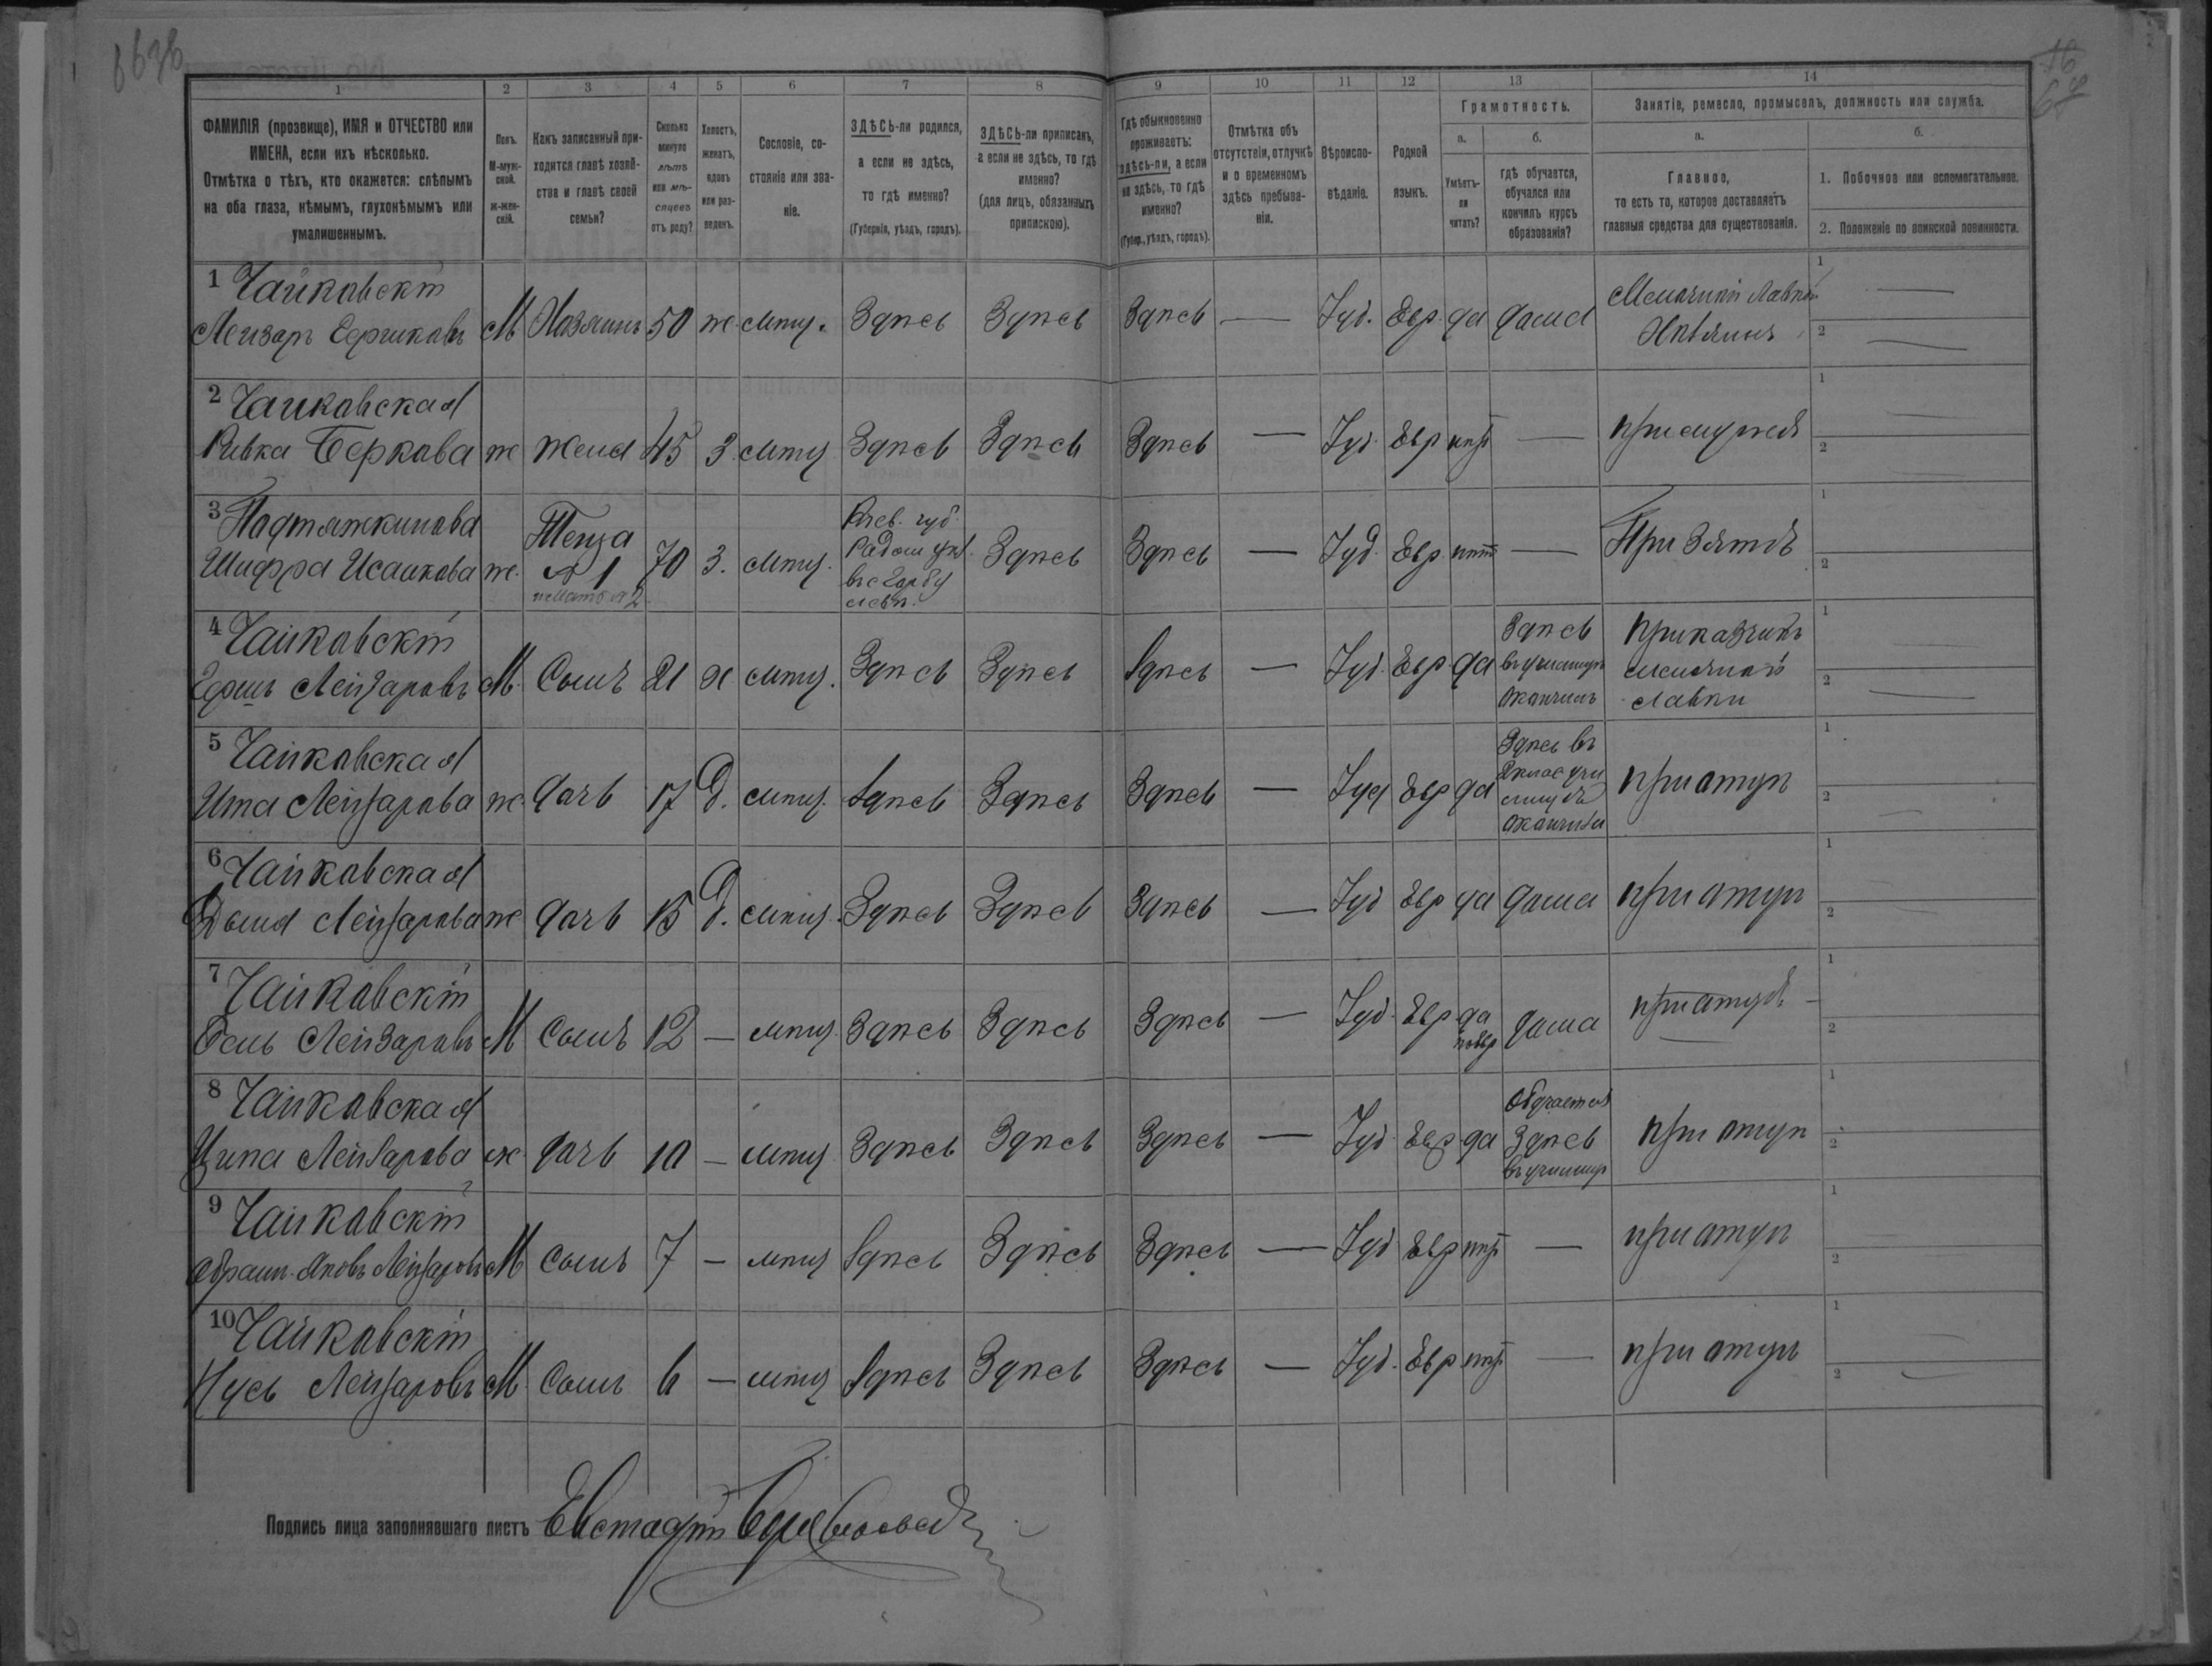 1 2 3 4 5 6 7 8 9 10 11 12 13 14
ФАМИЛІЯ (прозвище), ИМЯ и ОТЧЕСТВО или ИМЕНА, если ихъ нѣсколько.
Отмѣтка о тѣхъ, кто окажется: слѣпымъ на оба глаза, нѣмымъ, глухонѣмымъ или умалишеннымъ.
Полъ. М-муж-ской. Ж-жен-скій.
Какъ записанный при-ходится главѣ хозяй-ства и главѣ своей семьи?
Сколько минуло лѣтъ или мѣ-сяцевъ отъ роду?
Холостъ, женатъ, вдовъ или раз-веденъ.
Сословіе, со-стояніе или зва-ніе.
ЗДѢСЬ-ли родился, а если не здѣсь, то гдѣ именно? (Губернія, уѣздъ, городъ).
ЗДѢСЬ-ли приписанъ, а если не здѣсь, то гдѣ именно? (для лицъ, обязанныхъ припискою).
Гдѣ обыкновенно проживаетъ: здѣсь-ли, а если не здѣсь, то гдѣ именно? (Губер., уѣздъ, городъ).
Отмѣтка объ отсутствіи, отлучкѣ и о временномъ здѣсь пребыва-ніи.
Вѣроиспо-вѣданіе.
Родной языкъ.
Грамотность.
а. Умѣетъ-ли читать?
б. гдѣ обучается, обучался или кончилъ курсъ образованія?
Занятіе, ремесло, промыселъ, должность или служба.
а. Главное, то есть то, которое доставляетъ главныя средства для существованія.
б.
1. Побочное или вспомогательное.
2. Положеніе по воинской повинности.
1 Чайковскій
Лейзаръ Гершковъ М Хозяинъ 50 ж. мѣщ. Здѣсь Здѣсь Здѣсь — Іуд. Евр. да дома Мелочной Лавки Хозяинъ 1 — 2 —
2 Чайковская
Ривка Беркова ж жена 45 З. мѣщ Здѣсь Здѣсь Здѣсь — Іуд. Евр нѣт — при мужѣ 1 2
3 Подтяжкинова
Шифра Исаакова ж. Теща № 1 70 З. мѣщ. Кіев. губ. Здѣсь Здѣсь — Іуд. Евр. нѣт — При Зятѣ 1 2
4 Чайковскій
Гершъ Лейзаровъ М. Сынъ 21 х мѣщ. Здѣсь Здѣсь Здѣсь — Іуд. Евр да Здѣсь въ училищѣ окончилъ приказчикъ мелочной лавки 1 2
5 Чайковская
Ита Лейзарова ж. дочь 17 Д. мѣщ. Здѣсь Здѣсь Здѣсь — Іуд Евр да Здѣсь въ училищѣ окончила при отцѣ 1 2
6 Чайковская
Лейзарова ж дочь 15 Д. мѣщ. Здѣсь Здѣсь Здѣсь — Іуд Евр да дома при отцѣ 1 2
7 Чайковскій
Лейзаровъ М Сынъ 12 — мѣщ Здѣсь Здѣсь Здѣсь — Іуд. Евр да по евр дома при отцѣ 1 2
8 Чайковская
Ципа Лейзарова ж дочь 10 — мѣщ Здѣсь Здѣсь Здѣсь — Іуд Евр да Обучается Здѣсь въ училищѣ при отцѣ 1 2
9 Чайковскій
Абрамъ-Яковъ Лейзаровъ М Сынъ 7 — мѣщ Здѣсь Здѣсь Здѣсь — Іуд Евр нѣт — при отцѣ 1 2
10 Чайковскій
Нусь Лейзаровъ М Сынъ 6 — мѣщ Здѣсь Здѣсь Здѣсь — Іуд. Евр нѣт — при отцѣ 1 2
Подпись лица заполнявшаго листъ Евстафій